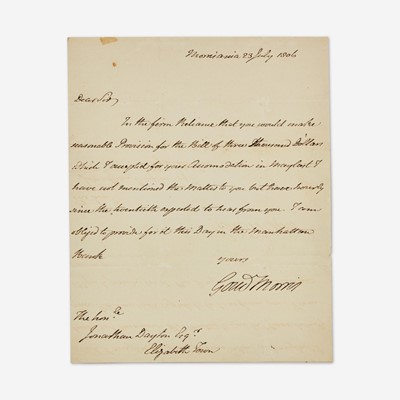 Morrisania 23 July 1806
Dear Sir,
In the firm Reliance that you would make
seasonable Provision for the Bill of three thousand Dollars
which I accepted for your Accomodation in May last I
have not mentioned the Matter to you but have hourly
since the twentieth expected to hear from you. I am
obliged to provide for it this Day in the Manhattan
Bank
yours
Gouv Morris
The honble
Jonathan Dayton Esqr.
Elizabeth Town